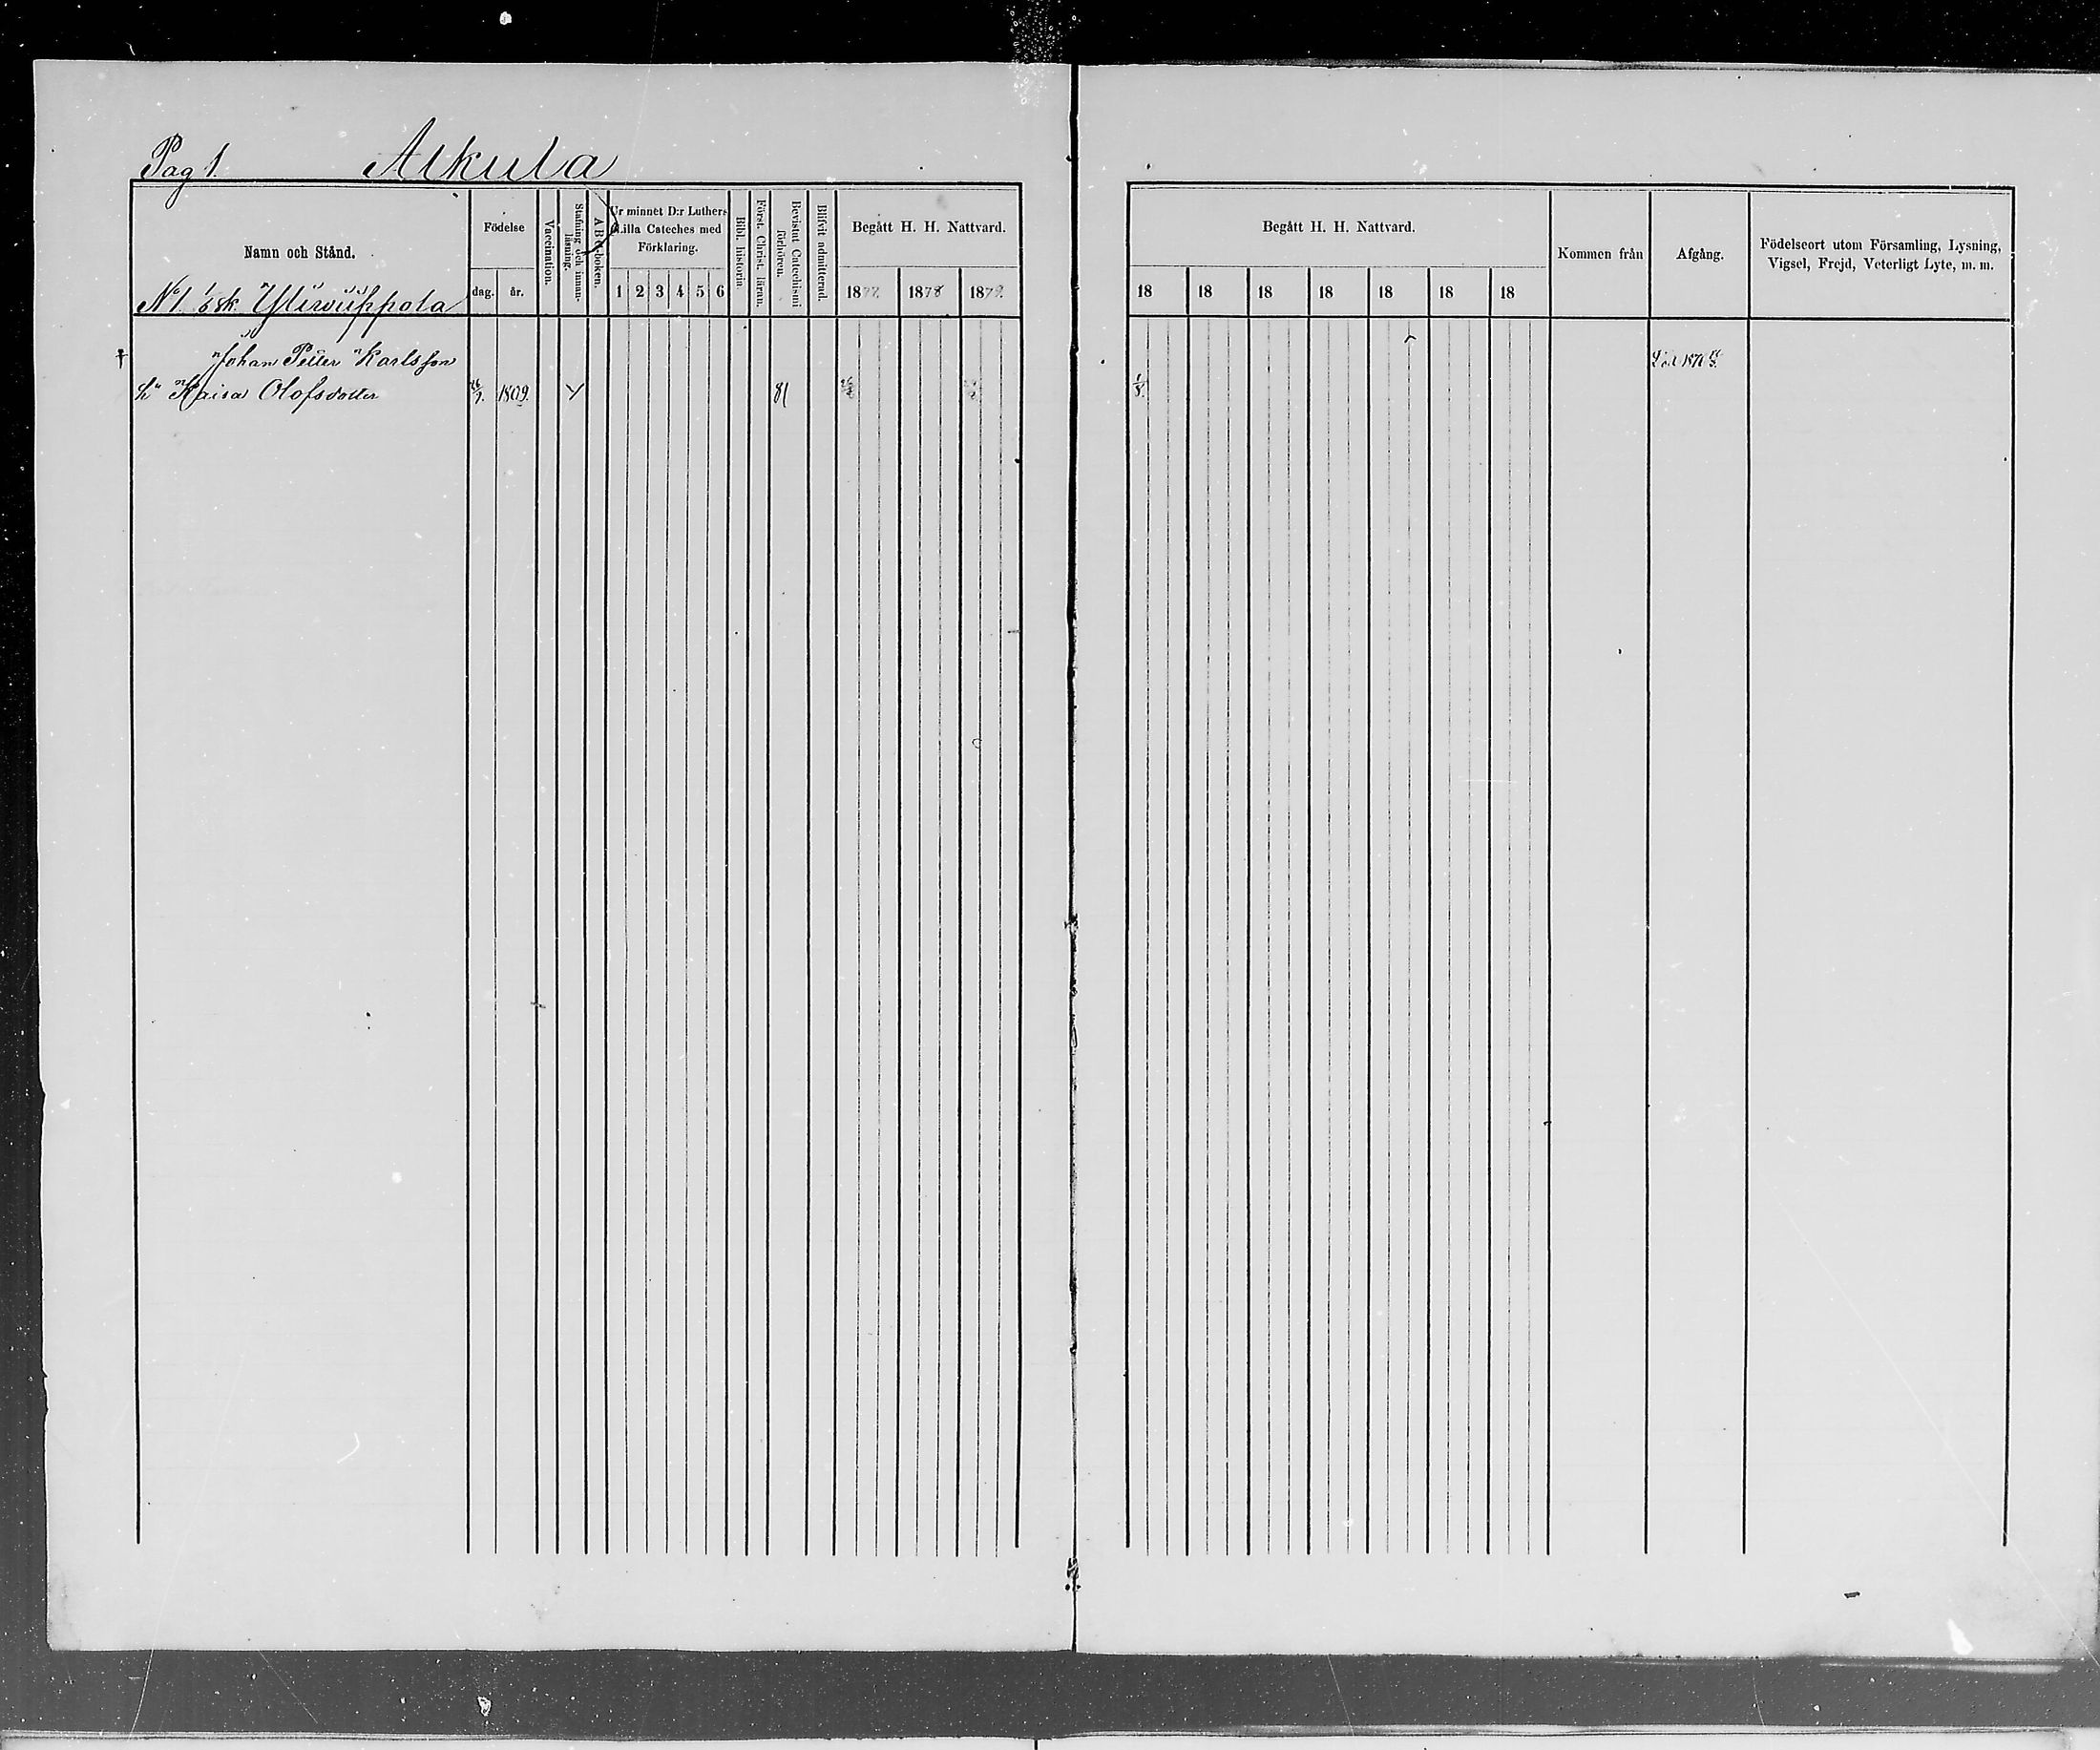 Pag 1. Alkula
Namn och Stånd.
Födelse
dag. år.
Vaccination.
Stafning och innanläsning.
A B C-boken.
Ur minnet D:r Luthers Lilla Cateches med Förklaring.
1 2 3 4 5 6
Bibl. historia
Först. Christ. läran.
Bevistat Catechismi förhören.
Blifvit admitterad.
Begått H. H. Nattvard.
1877. 1878 1879.
Begått H. H. Nattvard.
18 18 18 18 18 18 18
Kommen från
Afgång.
Födelseort utom Församling, Lysning,
Vigsel, Frejd, Veterligt Lyte, m. m.
No 1
Johan Petter Karlsson Död
h Kaisa Olofsdotter 1809. 81 1/8.